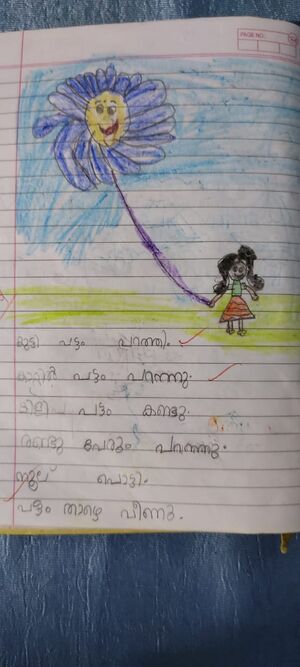 PAGE NO.
കുട്ടി പട്ടം പറത്തി.
കാറ്റിൽ പട്ടം പറന്നു.
കിളി പട്ടം കണ്ടു.
രണ്ടു പേരും പറന്നു.
നൂല് പൊട്ടി.
പട്ടം താഴെ വീണു.